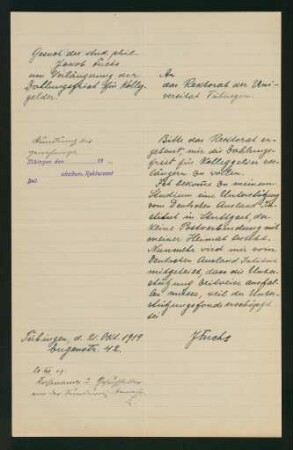 Gesuch des stud. phil.
Jakob Fuchs
um Verlängerung der
Zahlungsfrist für Kolleg-
gelder.
An
das Rektorat der Uni-
versität Tübingen.
Tübingen den 19
akadem. Rektoramt
Bitte das Rektorat er-
gebenst, mir die Zahlungs-
frist für Kolleggelder ver-
längern zu wollen.
Ich bekomme zu meinem
Studium eine Unterstützung
vom Deutschen Ausland-In-
stitut in Stuttgart, da
keine Postverbindung mit
meiner Heimat besteht.
Nunmehr wird mir vom
Deutschen Ausland Institut
mitgeteilt, dass die Unter-
stützung zeitweise ausfal-
len müsse, weil der Unter-
stützungsfonds erschöpft
sei
Tübingen, d. 21. Okt. 1919
Eugenstr. 42.
J Fuchs